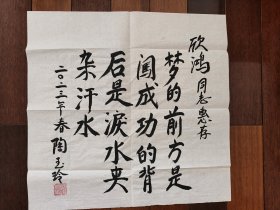 欣鸿同志惠存
梦的前方是
闯成功的背
后是淚水夹
杂汗水
二〇二三年春 陶玉玲